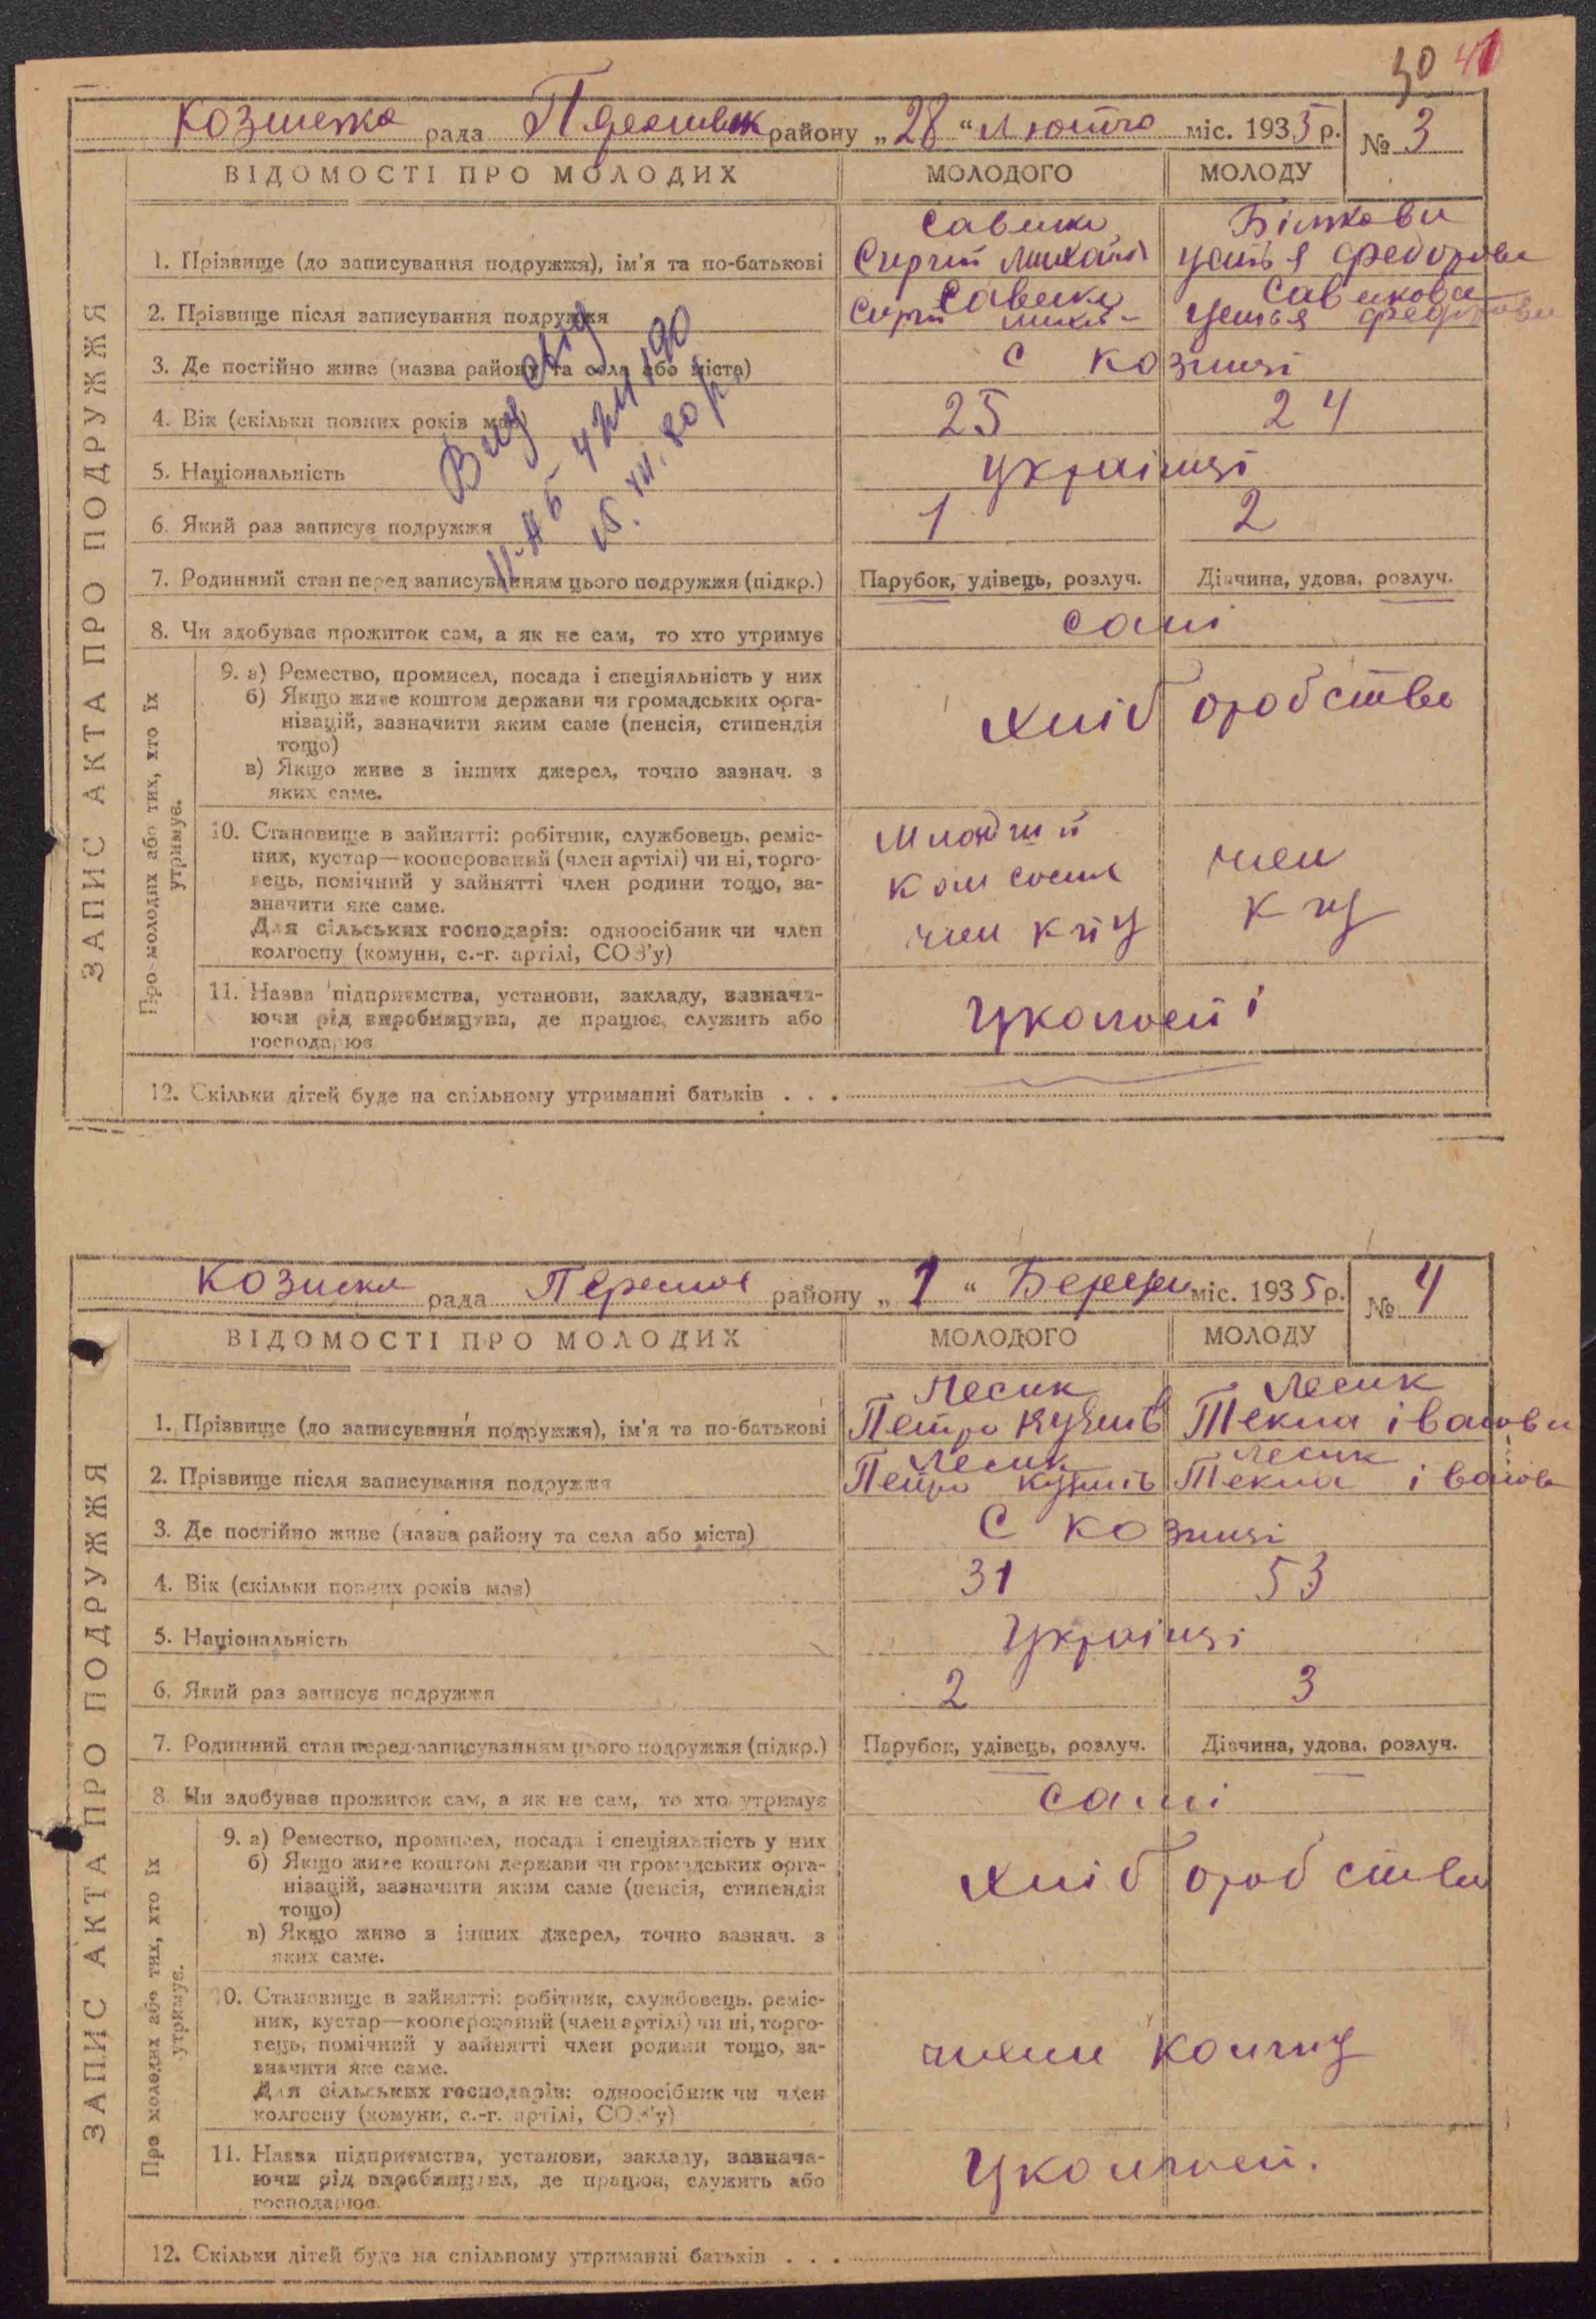 30 41
рада району „28“ Лютого міс. 1935 р. № 3
ВІДОМОСТІ ПРО МОЛОДИХ МОЛОДОГО МОЛОДУ
ЗАПИС АКТА ПРО ПОДРУЖЖЯ
1. Прізвище (до записування подружжя), ім'я та по-батькові
2. Прізвище після записування подружжя
3. Де постійно живе (назва району та села або міста) С Козинці
4. Вік (скільки повних років має) 25 24
5. Національність Українці
6. Який раз записує подружжя 1 2
7. Родинний стан перед записуванням цього подружжя (підкр.) Парубок, удівець, розлуч. Дівчина, удова, розлуч.
8. Чи здобуває прожиток сам, а як не сам, то хто утримує самі
Про молодих або тих, хто їх утримує.
9. а) Ремество, промисел, посада і спеціяльність у них
б) Якщо живе коштом держави чи громадських орга-
нізацій, зазначити яким саме (пенсія, стипендія
тощо)
хліборобство
в) Якщо живе з інших джерел, точно зазнач. з
яких саме.
10. Становище в зайнятті: робітник, службовець, реміс-
ник, кустар—кооперований (член артілі) чи ні, торго-
вець, помічний у зайнятті член родини тощо, за-
значити яке саме.
Для сільських господарів: одноосібник чи член
колгоспу (комуни, с.-г. артілі, СОЗ'у)
член
11. Назва підприємства, установи, закладу, зазнача-
ючи рід виробництва, де працює, служить або
господарює
12. Скільки дітей буде на спільному утриманні батьків . . .
рада району „1“ міс. 1935 р. № 4
ВІДОМОСТІ ПРО МОЛОДИХ МОЛОДОГО МОЛОДУ
ЗАПИС АКТА ПРО ПОДРУЖЖЯ
Лесик Лесик
1. Прізвище (до записування подружжя), ім'я та по-батькові Петро Текла Іванови
Лесик Лесик
2. Прізвище після записування подружжя Петро Текла Іванов
3. Де постійно живе (назва району та села або міста) С Козинці
4. Вік (скільки повних років має) 31 53
5. Національність Українці
6. Який раз записує подружжя 2 3
7. Родинний стан перед записуванням цього подружжя (підкр.) Парубок, удівець, розлуч. Дівчина, удова, розлуч.
8. Чи здобуває прожиток сам, а як не сам, то хто утримує самі
Про молодих або тих, хто їх утримує.
9. а) Ремество, промисел, посада і спеціяльність у них
б) Якщо живе коштом держави чи громадських орга-
нізацій, зазначити яким саме (пенсія, стипендія
тощо)
хліборобство
в) Якщо живе з інших джерел, точно зазнач. з
яких саме.
10. Становище в зайнятті: робітник, службовець, реміс-
ник, кустар—кооперований (член артілі) чи ні, торго-
вець, помічний у зайнятті член родини тощо, за-
значити яке саме.
Для сільських господарів: одноосібник чи член
колгоспу (комуни, с.-г. артілі, СОЗ'у)
11. Назва підприємства, установи, закладу, зазнача-
ючи рід виробництва, де працює, служить або
господарює.
12. Скільки дітей буде на спільному утриманні батьків . . .